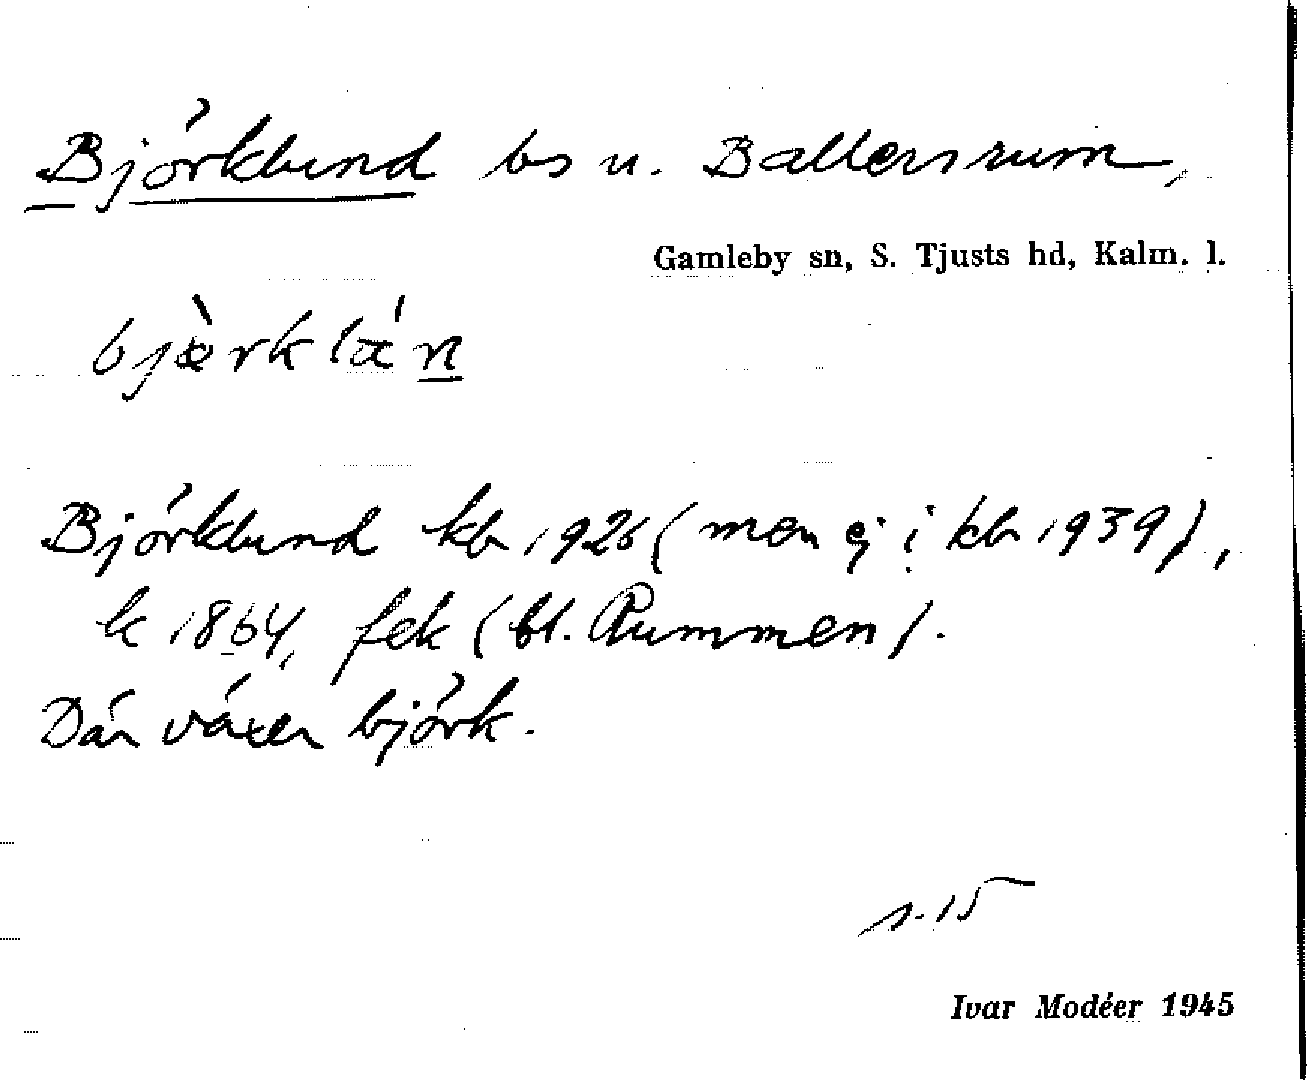 Björklund bs u. Ballersrum,
Gamleby sn, S. Tjusts hd, Kalm. l.
Björklund kb 1926 (men ej i kb 1939),
k 1864, fek (bl. Rummen).
Där växer björk.
s. 15
Ivar Modéer 1945